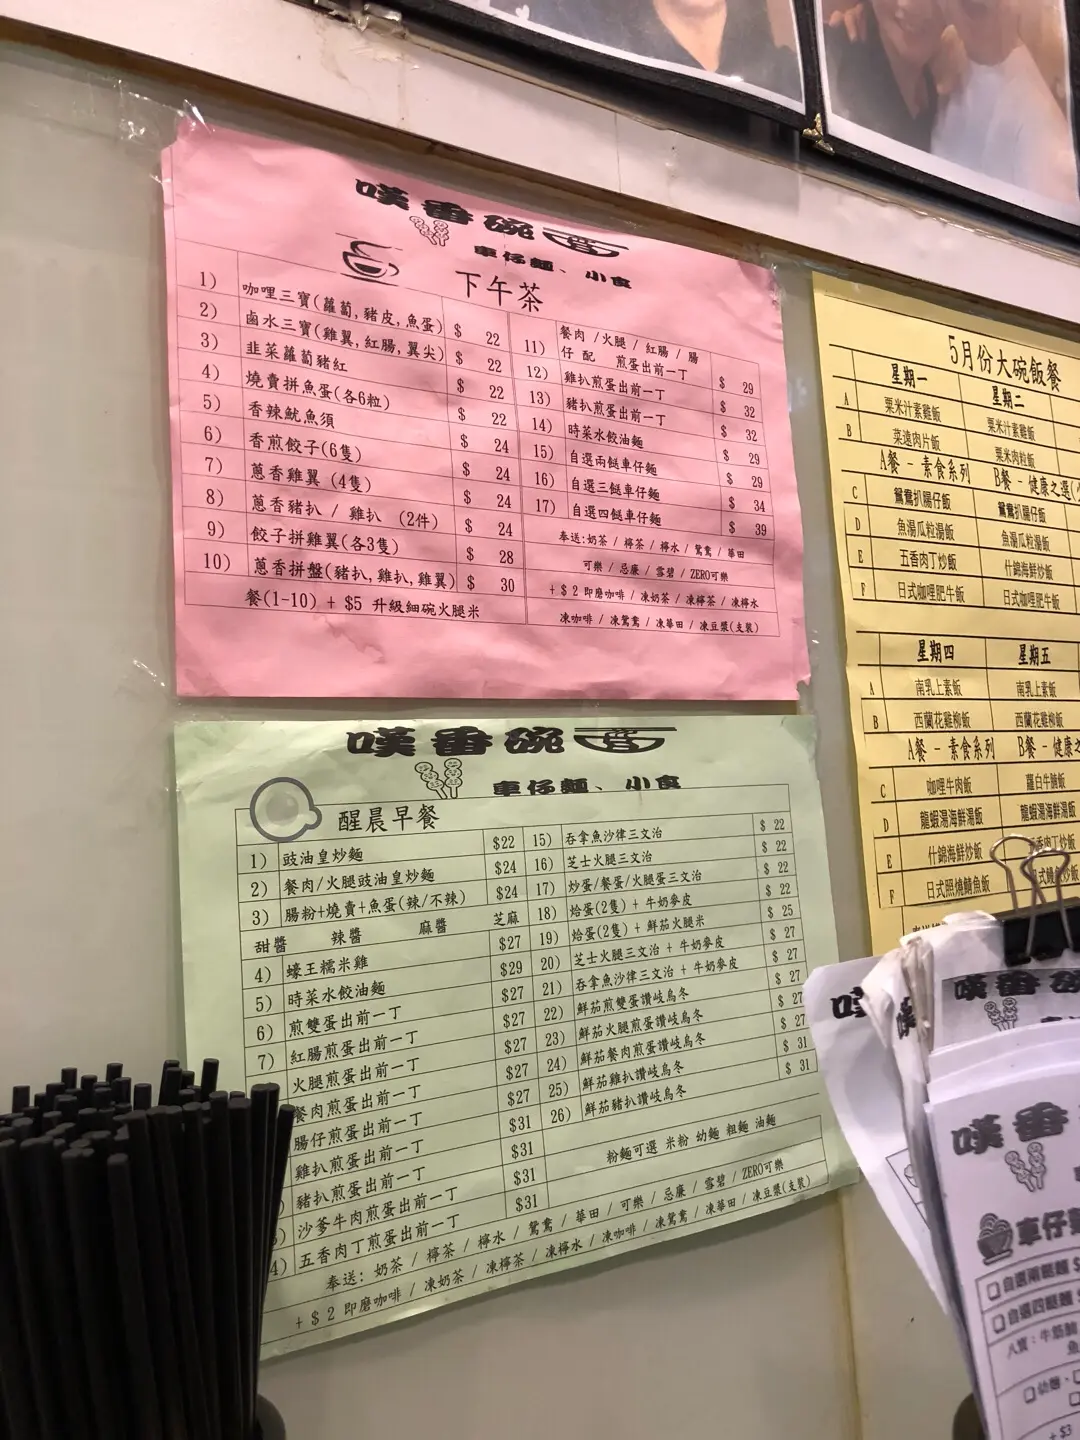 嘆番碗
車仔麵、小食
下午茶
1) 咖哩三寶(蘿蔔,豬皮,魚蛋) $ 22
2) 鹵水三寶(雞翼,紅腸,翼尖) $ 22
3) 韭菜蘿蔔豬紅 $ 22
4) 燒賣拼魚蛋(各6粒) $ 22
5) 香辣魷魚須 $ 24
6) 香煎餃子(6隻) $ 24
7) 蔥香雞翼 (4隻) $ 24
8) 蔥香豬扒 / 雞扒 (2件) $ 24
9) 餃子拼雞翼(各3隻) $ 28
10) 蔥香拼盤(豬扒,雞扒,雞翼) $ 30
餐(1-10) + $5 升級細碗火腿米
11) 餐肉 /火腿 / 紅腸 / 腸
仔 配 煎蛋出前一丁 $ 29
12) 雞扒煎蛋出前一丁 $ 32
13) 豬扒煎蛋出前一丁 $ 32
14) 時菜水餃油麵 $ 29
15) 自選兩餸車仔麵 $ 29
16) 自選三餸車仔麵 $ 34
17) 自選四餸車仔麵 $ 39
奉送:奶茶 / 檸茶 / 檸水 / 鴛鴦 / 華田
可樂 / 忌廉 / 雪碧 / ZERO可樂
+ $ 2 即磨咖啡 / 凍奶茶 / 凍檸茶 / 凍檸水
凍咖啡 / 凍鴛鴦 / 凍華田 / 凍豆漿(支裝)
嘆番碗
車仔麵、小食
醒晨早餐
1) 豉油皇炒麵 $22
2) 餐肉/火腿豉油皇炒麵 $24
3) 腸粉+燒賣+魚蛋(辣/不辣) $24
甜醬 辣醬 麻醬 芝麻
4) 蠔王糯米雞 $27
5) 時菜水餃油麵 $29
6) 煎雙蛋出前一丁 $27
7) 紅腸煎蛋出前一丁 $27
火腿煎蛋出前一丁 $27
餐肉煎蛋出前一丁 $27
腸仔煎蛋出前一丁 $27
雞扒煎蛋出前一丁 $31
豬扒煎蛋出前一丁 $31
沙爹牛肉煎蛋出前一丁 $31
4) 五香肉丁煎蛋出前一丁 $31
15) 吞拿魚沙律三文治 $ 22
16) 芝士火腿三文治 $ 22
17) 炒蛋/餐蛋/火腿蛋三文治 $ 22
18) 烚蛋(2隻) + 牛奶麥皮 $ 22
19) 烚蛋(2隻) + 鮮茄火腿米 $ 25
20) 芝士火腿三文治 + 牛奶麥皮 $ 27
21) 吞拿魚沙律三文治 + 牛奶麥皮 $ 27
22) 鮮茄煎雙蛋讚岐烏冬 $ 27
23) 鮮茄火腿煎蛋讚岐烏冬 $ 27
24) 鮮茄餐肉煎蛋讚岐烏冬 $ 27
25) 鮮茄雞扒讚岐烏冬 $ 31
26) 鮮茄豬扒讚岐烏冬 $ 31
粉麵可選 米粉 幼麵 粗麵 油麵
奉送: 奶茶 / 檸茶 / 檸水 / 鴛鴦 / 華田 / 可樂 / 忌廉 / 雪碧 / ZERO可樂
+ $ 2 即磨咖啡 / 凍奶茶 / 凍檸茶 / 凍檸水 / 凍咖啡 / 凍鴛鴦 / 凍華田 / 凍豆漿(支裝)
5月份大碗飯餐
星期一 星期二
A 粟米汁素雞飯 粟米汁素雞飯
B 菜遠肉片飯 粟米肉粒飯
A餐 - 素食系列 B餐 - 健康之選(
C 鴛鴦扒腸仔飯 鴛鴦扒腸仔飯
D 魚湯瓜粒湯飯 魚湯瓜粒湯飯
E 五香肉丁炒飯 什錦海鮮炒飯
F 日式咖哩肥牛飯 日式咖哩肥牛飯
星期四 星期五
A 南乳上素飯 南乳上素飯
B 西蘭花雞柳飯 西蘭花雞柳飯
A餐 - 素食系列 B餐 - 健康之
C 咖哩牛肉飯 蘿白牛腩飯
D 龍蝦湯海鮮湯飯 龍蝦湯海鮮湯飯
E 什錦海鮮炒飯 香肉丁炒飯
F 日式照燒鯖魚飯
嘆番
嘆番
車仔
自選兩餸麵
自選四餸麵
八寶:牛筋腩
魚
幼麵